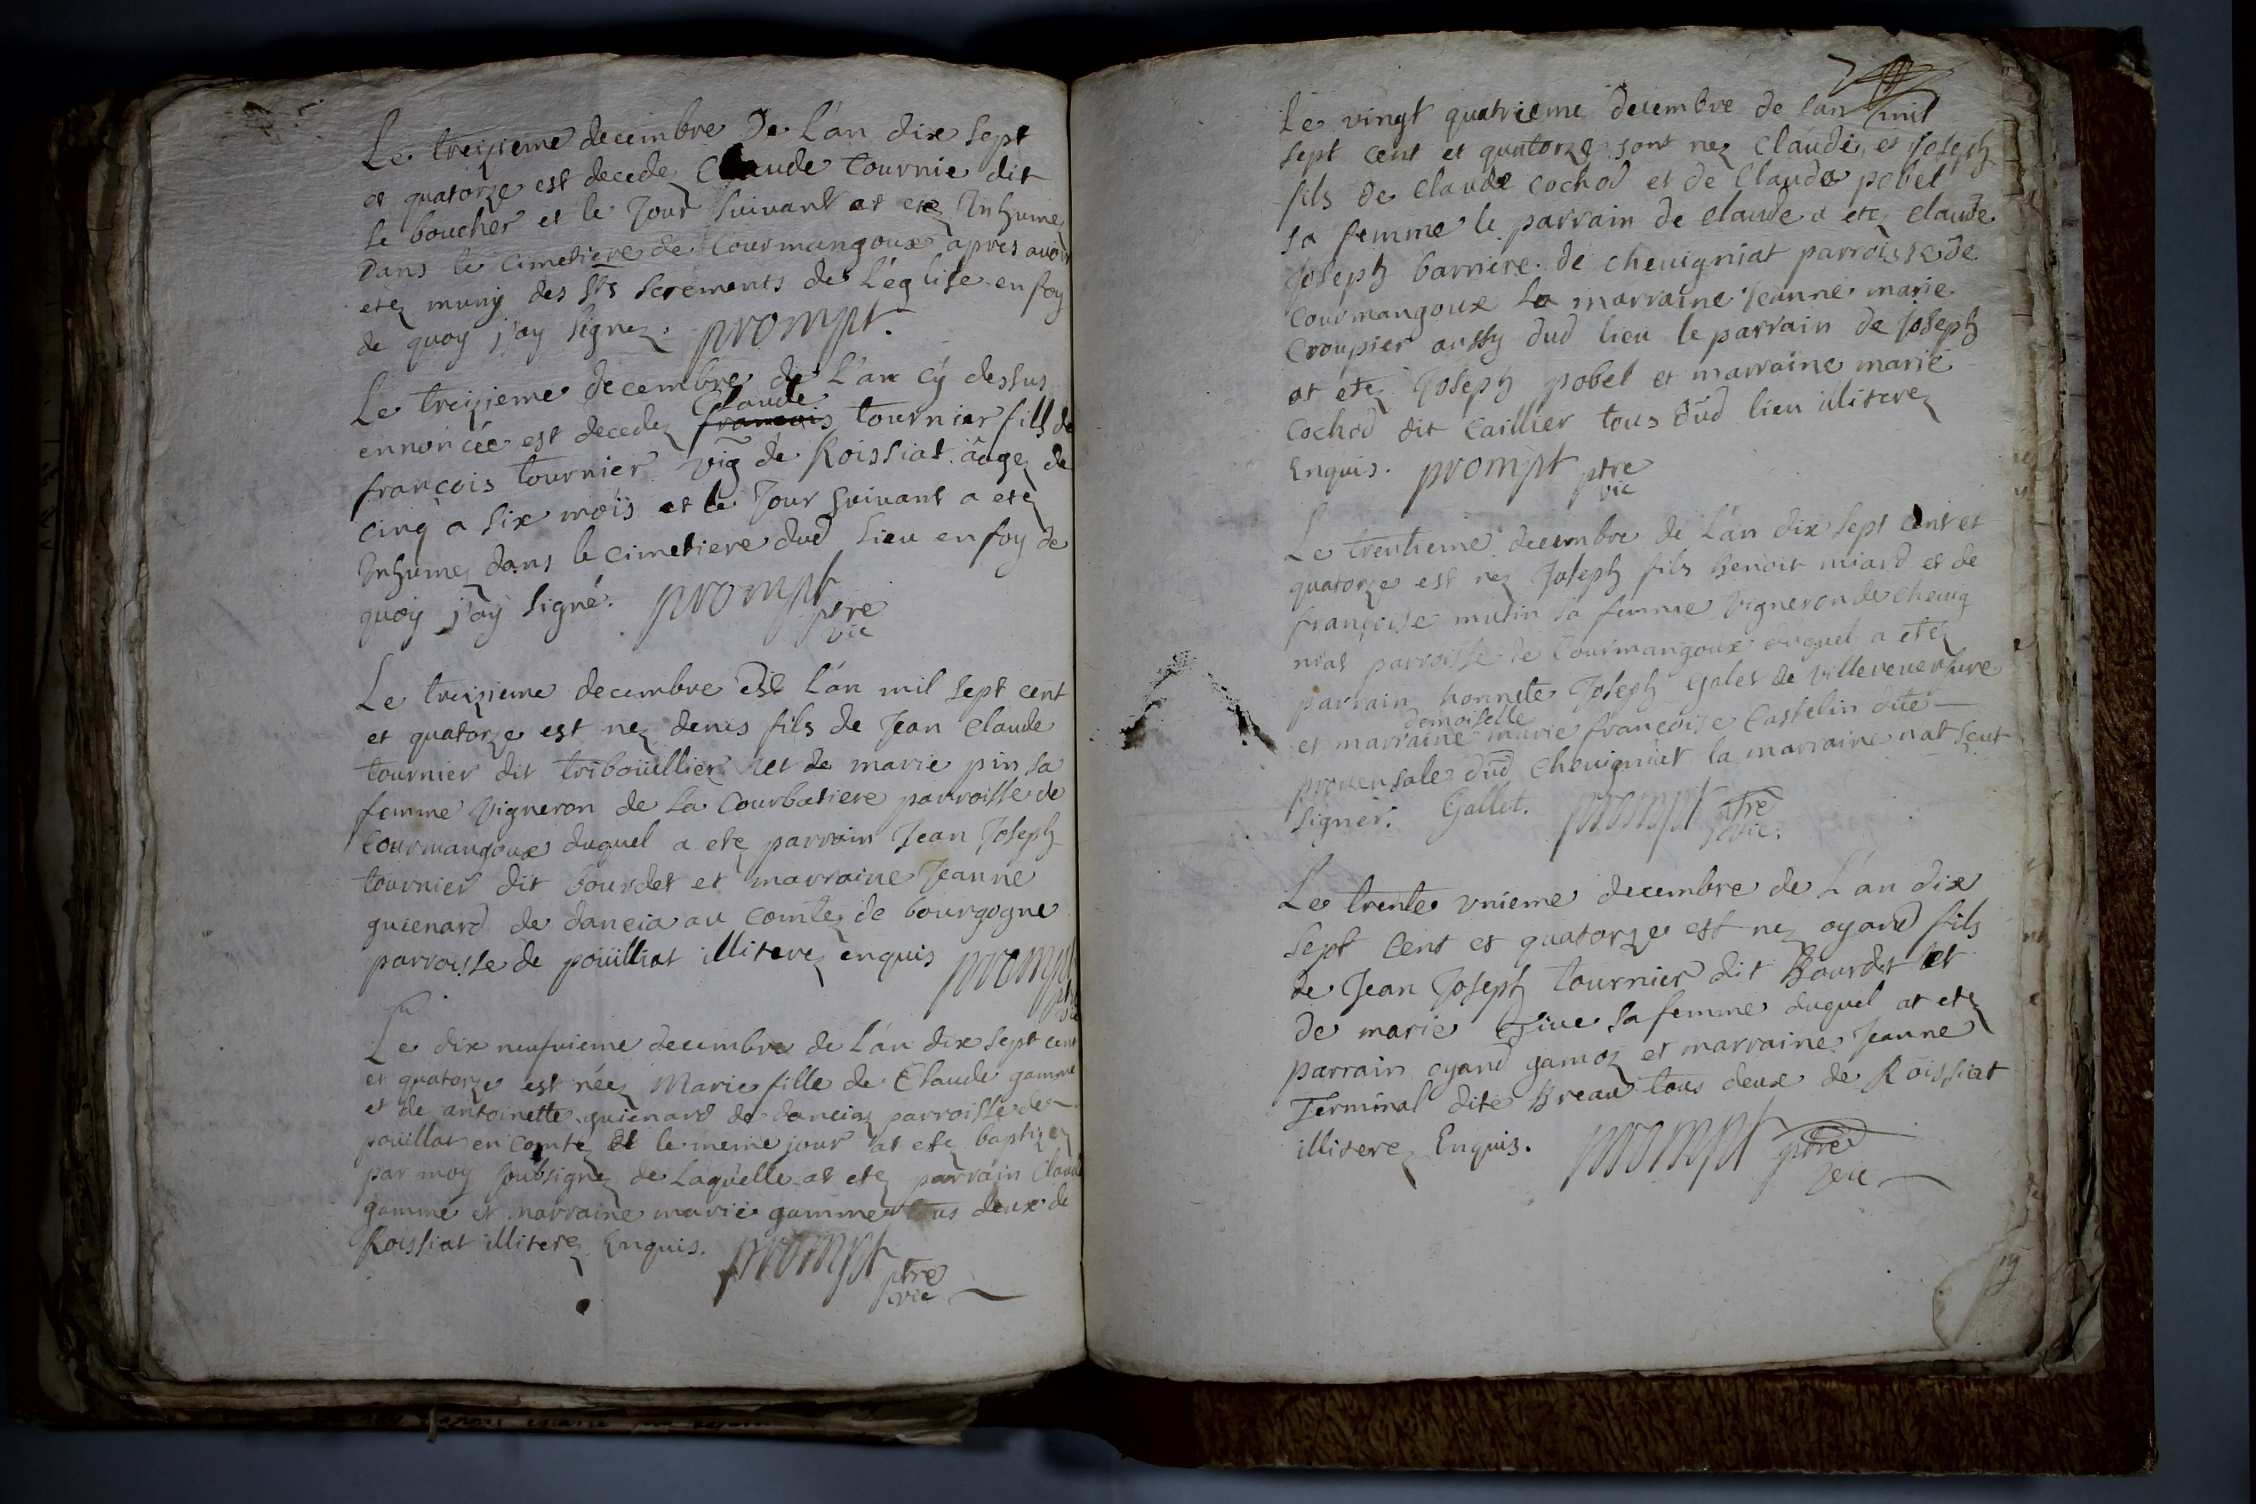 Le treizieme decembre De L'an dix sept
et quatorze est decedez Claude tournie dit
le boucher et le Jour suivant at etez Inhumez
dans le cimetiere de Courmangoux apres avoir
etez muny des Sts Screments de L'église en foy
de quoy j'ay signez. prompt.
Le treizieme decembre de L'an cy dessus
Claude
ennoncée est decedez francois tournier fils de
françois tournier vig de Roissiat âagez de
cinq a six mois et le Jour suivant a etez
Inhumez dans le cimetiere dud Lieu en foy de
quoy j'ay signé. prompt
ptre
vic
Le treizieme decembre de L'an mil sept cent
et quatorze est nez denis fils de Jean Claude
tournier dit triboüillier et de marie pin sa
femme vigneron de La Courbatiere parroisse de
Courmangoux duquel a etez parrain Jean Joseph
tournier dit bourdet et marraine Jeanne
guienard de dancia au Comtez de bourgogne
parroisse de poüilliat illiterez enquis prompt
ptre
Le dix neufvieme decembre de L'an dix sept cent
et quatorze est néez Marie fille de Claude gamme
et de antoinette guienard de danciaz parroisse de
poüillat en Comtez et le meme jour at etez baptizez
par moy soubsignez de Laquelle at etez parrain Claude
gamme et marraine marie gamme tous deux de
Roissiat illiterez Enquis. prompt
ptre
vic
Le vingt quatrieme decembre de L'an mil
sept cent et quatorze sont nez Claude, et Joseph
fils de Claude Cochod et de Clauda pobel
sa femme le parrain de Claude a etez Claude
Joseph barriere de chevigniat parroisse de
Courmangoux La marraine Jeanne marie
Croupier aussy dud lieu le parrain de Joseph
at etez Joseph pobel et marraine marie
Cochod dit Caillier tous dud lieu illiterez
Enquis. prompt ptre
vic
Le trentieme decembre de L'an dix sept cent et
quatorze est nez Joseph fils Benoit miard et de
françoise mutin sa femme vigneron de chevig
niat parroisse de Courmangoux duquel a etez
parrain honnete Joseph Galet de Villereversure
demoiselle
et marraine marie francoise Castelin dite
provensale dud chevigniat la marraine nat sçut
signer. Gallet. prompt ptre
vic.
Le trente unieme decembre de L'an dix
sept Cent et quatorze est nez oyand fils
de Jean Joseph tournier dit Bourdet et
de marie sa femme duquel at etez
parrain oyand gamoz et marraine Jeanne
Terminal dite Breau tous deux de Roissiat
illiterez Enquis. prompt ptre
vic